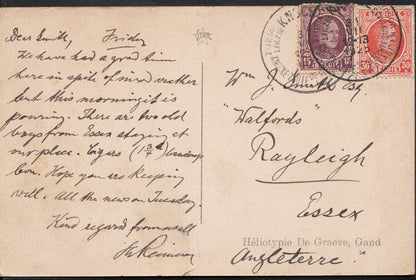 Dear Smith, Friday
We have had a good time
here in spite of mixed weather
but this morning it is
pouring. There are two old
boys from Essex staying at
our place. Cigars (1 3/4 d)
Hope you are keeping
well. All the news on Tuesday.
Kind regards from all
Wm J. Smith Esq
"Walfords"
Rayleigh
Essex
Angleterre.
Héliotypie De Graeve, Gand